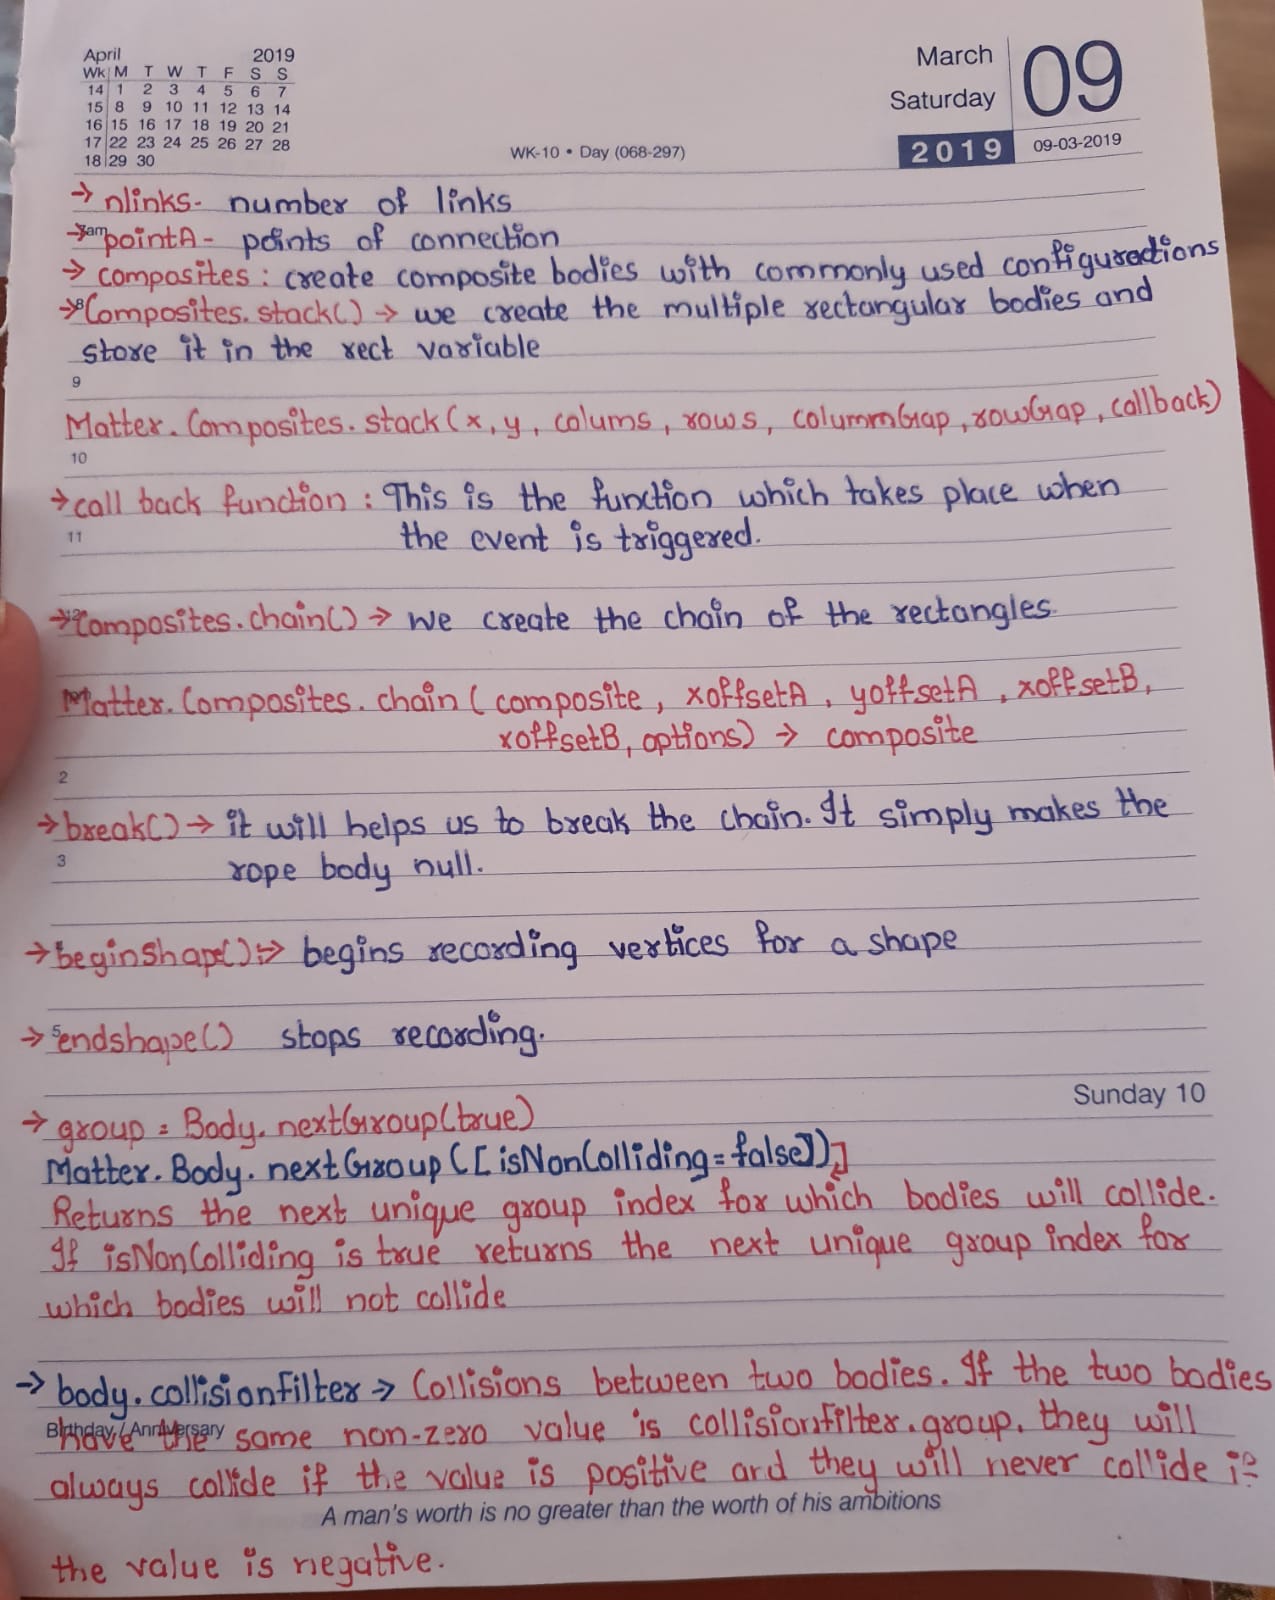 April 2019
Wk M T W T F S S
14 1 2 3 4 5 6 7
15 8 9 10 11 12 13 14
16 15 16 17 18 19 20 21
17 22 23 24 25 26 27 28
18 29 30
WK-10 • Day (068-297)
March
Saturday
2019
09
09-03-2019
→ nlinks- number of links
→ 7am pointA - points of connection
→ composites : create composite bodies with commonly used configurations
→ 8 Composites.stack() → we create the multiple rectangular bodies and
store it in the rect variable
9
Matter.Composites.stack(x, y, colums, rows, columnGap, rowGap, callback)
10
→ call back function : This is the function which takes place when
11
the event is triggered.
→ 12 Composites.chain() → we create the chain of the rectangles
Matter.Composites.chain( composite, xoffsetA, yoffsetA, xoffsetB,
xoffsetB, options) → composite
2
→ break() → it will helps us to break the chain. It simply makes the
3
rope body null.
→ beginShape() :→ begins recording vertices for a shape
→ 5 endshape() stops recording.
Sunday 10
→ group = Body.nextGroup(true)
Matter.Body.nextGroup([isNonColliding=false])]
Returns the next unique group index for which bodies will collide.
If isNonColliding is true returns the next unique group index for
which bodies will not collide
→ body.collisionFilter → Collisions between two bodies. If the two bodies
Birthday / Anniversary
have the same non-zero value is collisionfilter.group. they will
always collide if the value is positive and they will never collide if
A man's worth is no greater than the worth of his ambitions
the value is negative.